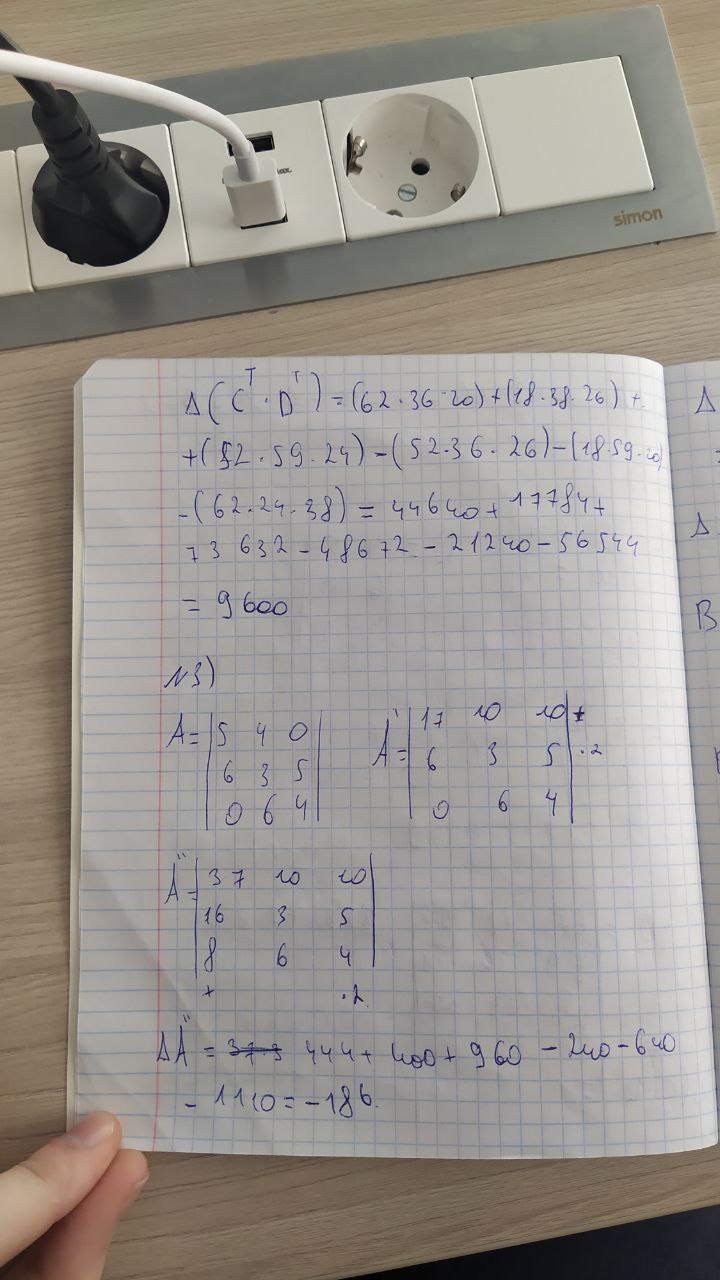 simon
Δ(Cᵀ·Dᵀ)=(62·36·20)+(18·38·26)+
+(52·59·24)-(52·36·26)-(18·59·20)
-(62·24·38)=44640+17784+
73632-48672-21240-56544
=9600
N3)
A=|5 4 0| A'=|17 10 10|+
|6 3 5| |6 3 5|·2
|0 6 4| |0 6 4|
A''=|37 10 10|
|16 3 5|
|8 6 4|
+ ·2
ΔA''= 444+400+960-240-640
-1110=-186.
Δ
Δ
B